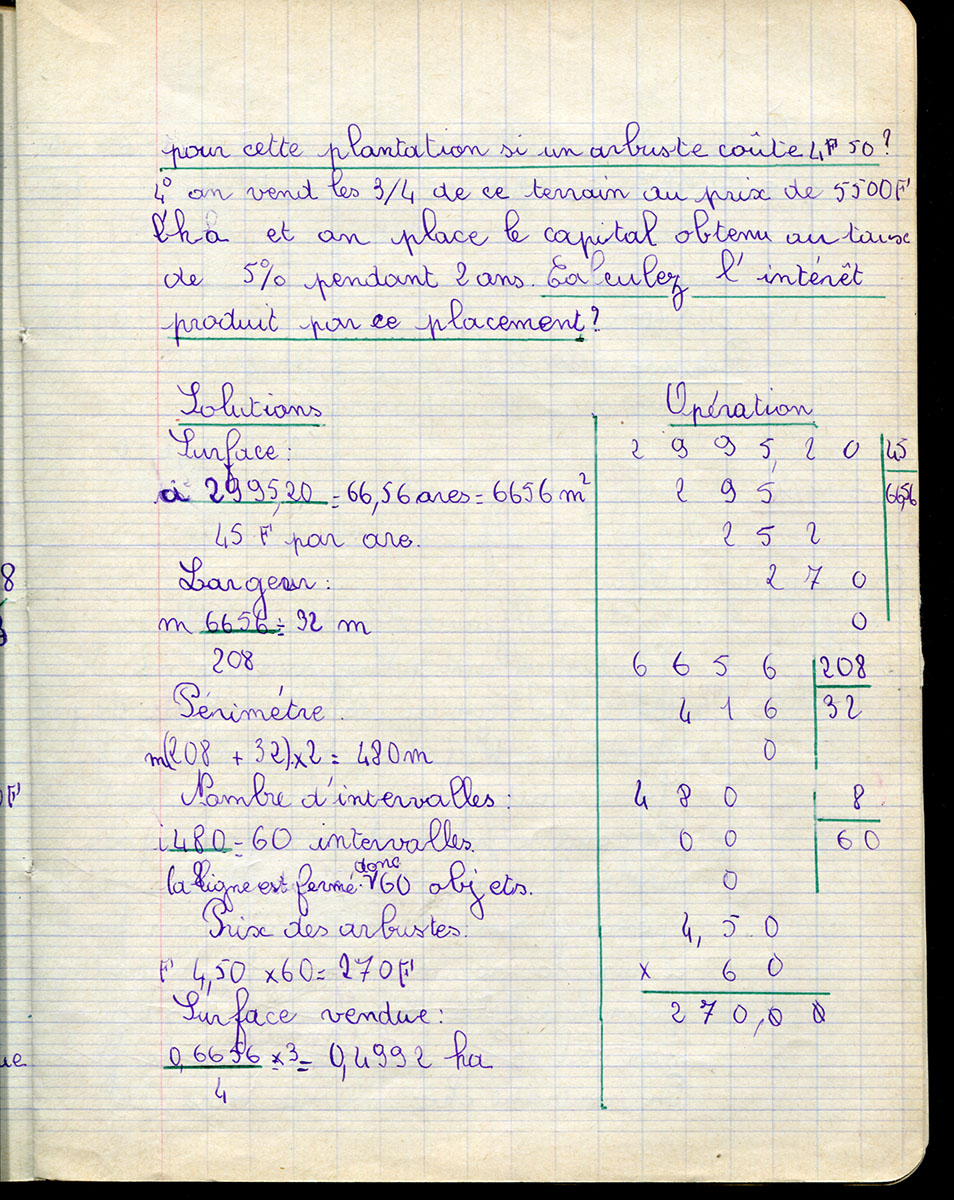 pour cette plantation si un arbuste coûte 4F50?
4° on vend les 3/4 de ce terrain au prix de 5500F
l'ha et on place le capital obtenu au taux
de 5% pendant 2 ans. Calculez l'intérêt
produit par ce placement?
Solutions
Surface:
a 2995,20 = 66,56 ares = 6656 m²
45 F par are.
Largeur:
m 6656 = 32 m
208
Périmétre.
m(208 + 32)×2 = 480m
Nombre d'intervalles:
i 480 = 60 intervalles.
la ligne est fermé. donc 60 objets.
Prix des arbustes.
F 4,50 ×60= 270F
Surface vendue:
0,6656 ×3 = 0,4992 ha
4
Opération
2 9 9 5, 2 0 45
2 9 5 66,56
2 5 2
2 7 0
0
6 6 5 6 208
4 1 6 32
0
4 8 0 8
0 0 60
0
4, 5 0
× 6 0
2 7 0, 0 0
8
F
ue